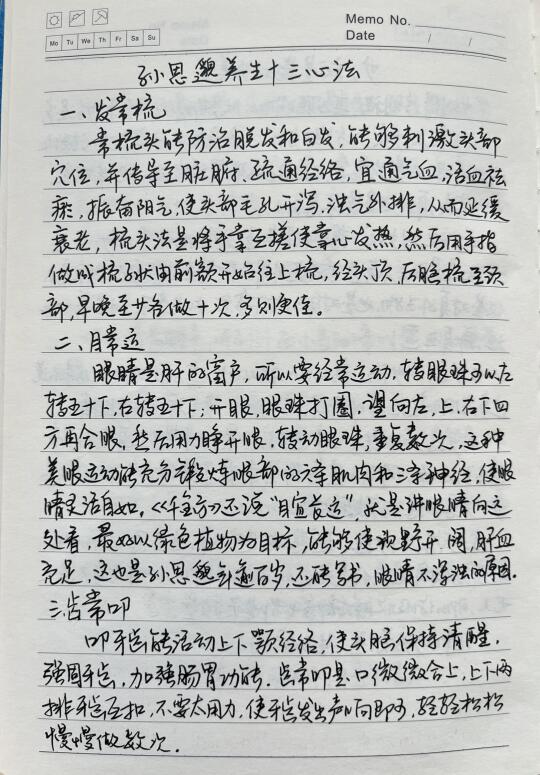 Memo No.
Mo Tu We Th Fr Sa Su
Date / /
孙思邈养生十三心法
一、发常梳
常梳头能防治脱发和白发,能够刺激头部
穴位,并传导至脏腑、疏通经络,宣通气血,活血祛
瘀,振奋阳气,使头部毛孔开泻,浊气外排,从而延缓
衰老,梳头法是将手掌互搓使掌心发热,然后用手指
做成梳形状由前额开始往上梳,经头顶,后脑梳至颈
部,早晚至少各做十次,多则更佳。
二、目常运
眼睛是肝的窗户,所以要经常运动,转眼珠可以左
转五十下,右转五十下;开眼,眼珠打圈,望向左、上、右下四
方再合眼,然后用力睁开眼,转动眼珠,重复数次,这种
美眼运动能充分锻炼眼部的六条肌肉和三条神经,使眼
睛灵活自如。《千金方》还说“目宜常运”,就是讲眼睛向远
处看,最好以绿色植物为目标,能够使视野开阔,肝血
充足,这也是孙思邈年逾百岁,还能写书,眼睛不浑浊的原因.
三、齿常叩
叩牙齿能活动上下颚经络,使头脑保持清醒,
强固牙齿,加强肠胃功能.齿常叩是:口微微合上,上下两
排牙齿互扣,不要太用力,使牙齿发出声响即可,轻轻松松
慢慢做数次.